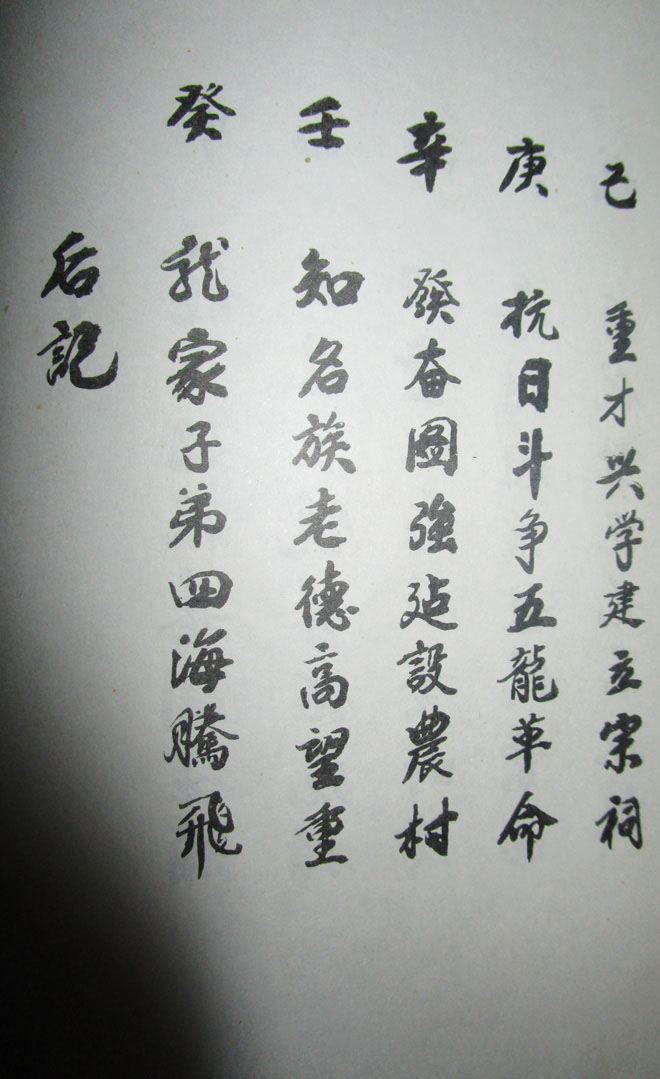 己 重才兴学建立宗祠
庚 抗日斗争五龍革命
辛 發奋图強建設農村
壬 知名族老德高望重
癸 龙家子弟四海騰飛
后記